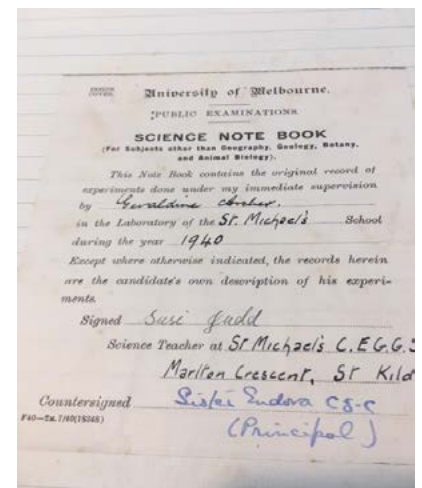 INSIDE COVER.
University of Melbourne.
PUBLIC EXAMINATIONS
SCIENCE NOTE BOOK
(For Subjects other than Geography, Geology, Botany,
and Animal Biology).
This Note Book contains the original record of
experiments done under my immediate supervision
by Geraldine Archer.
in the Laboratory of the St. Michael's School
during the year 1940
Except where otherwise indicated, the records herein
are the candidate's own description of his experi-
ments.
Signed Susi Judd
Science Teacher at St Michael's C.E.G.G.S
Marlton Crescent, St Kild
Countersigned Sister Eudora CSC
F40—2M.7/40(78348)
(Principal)